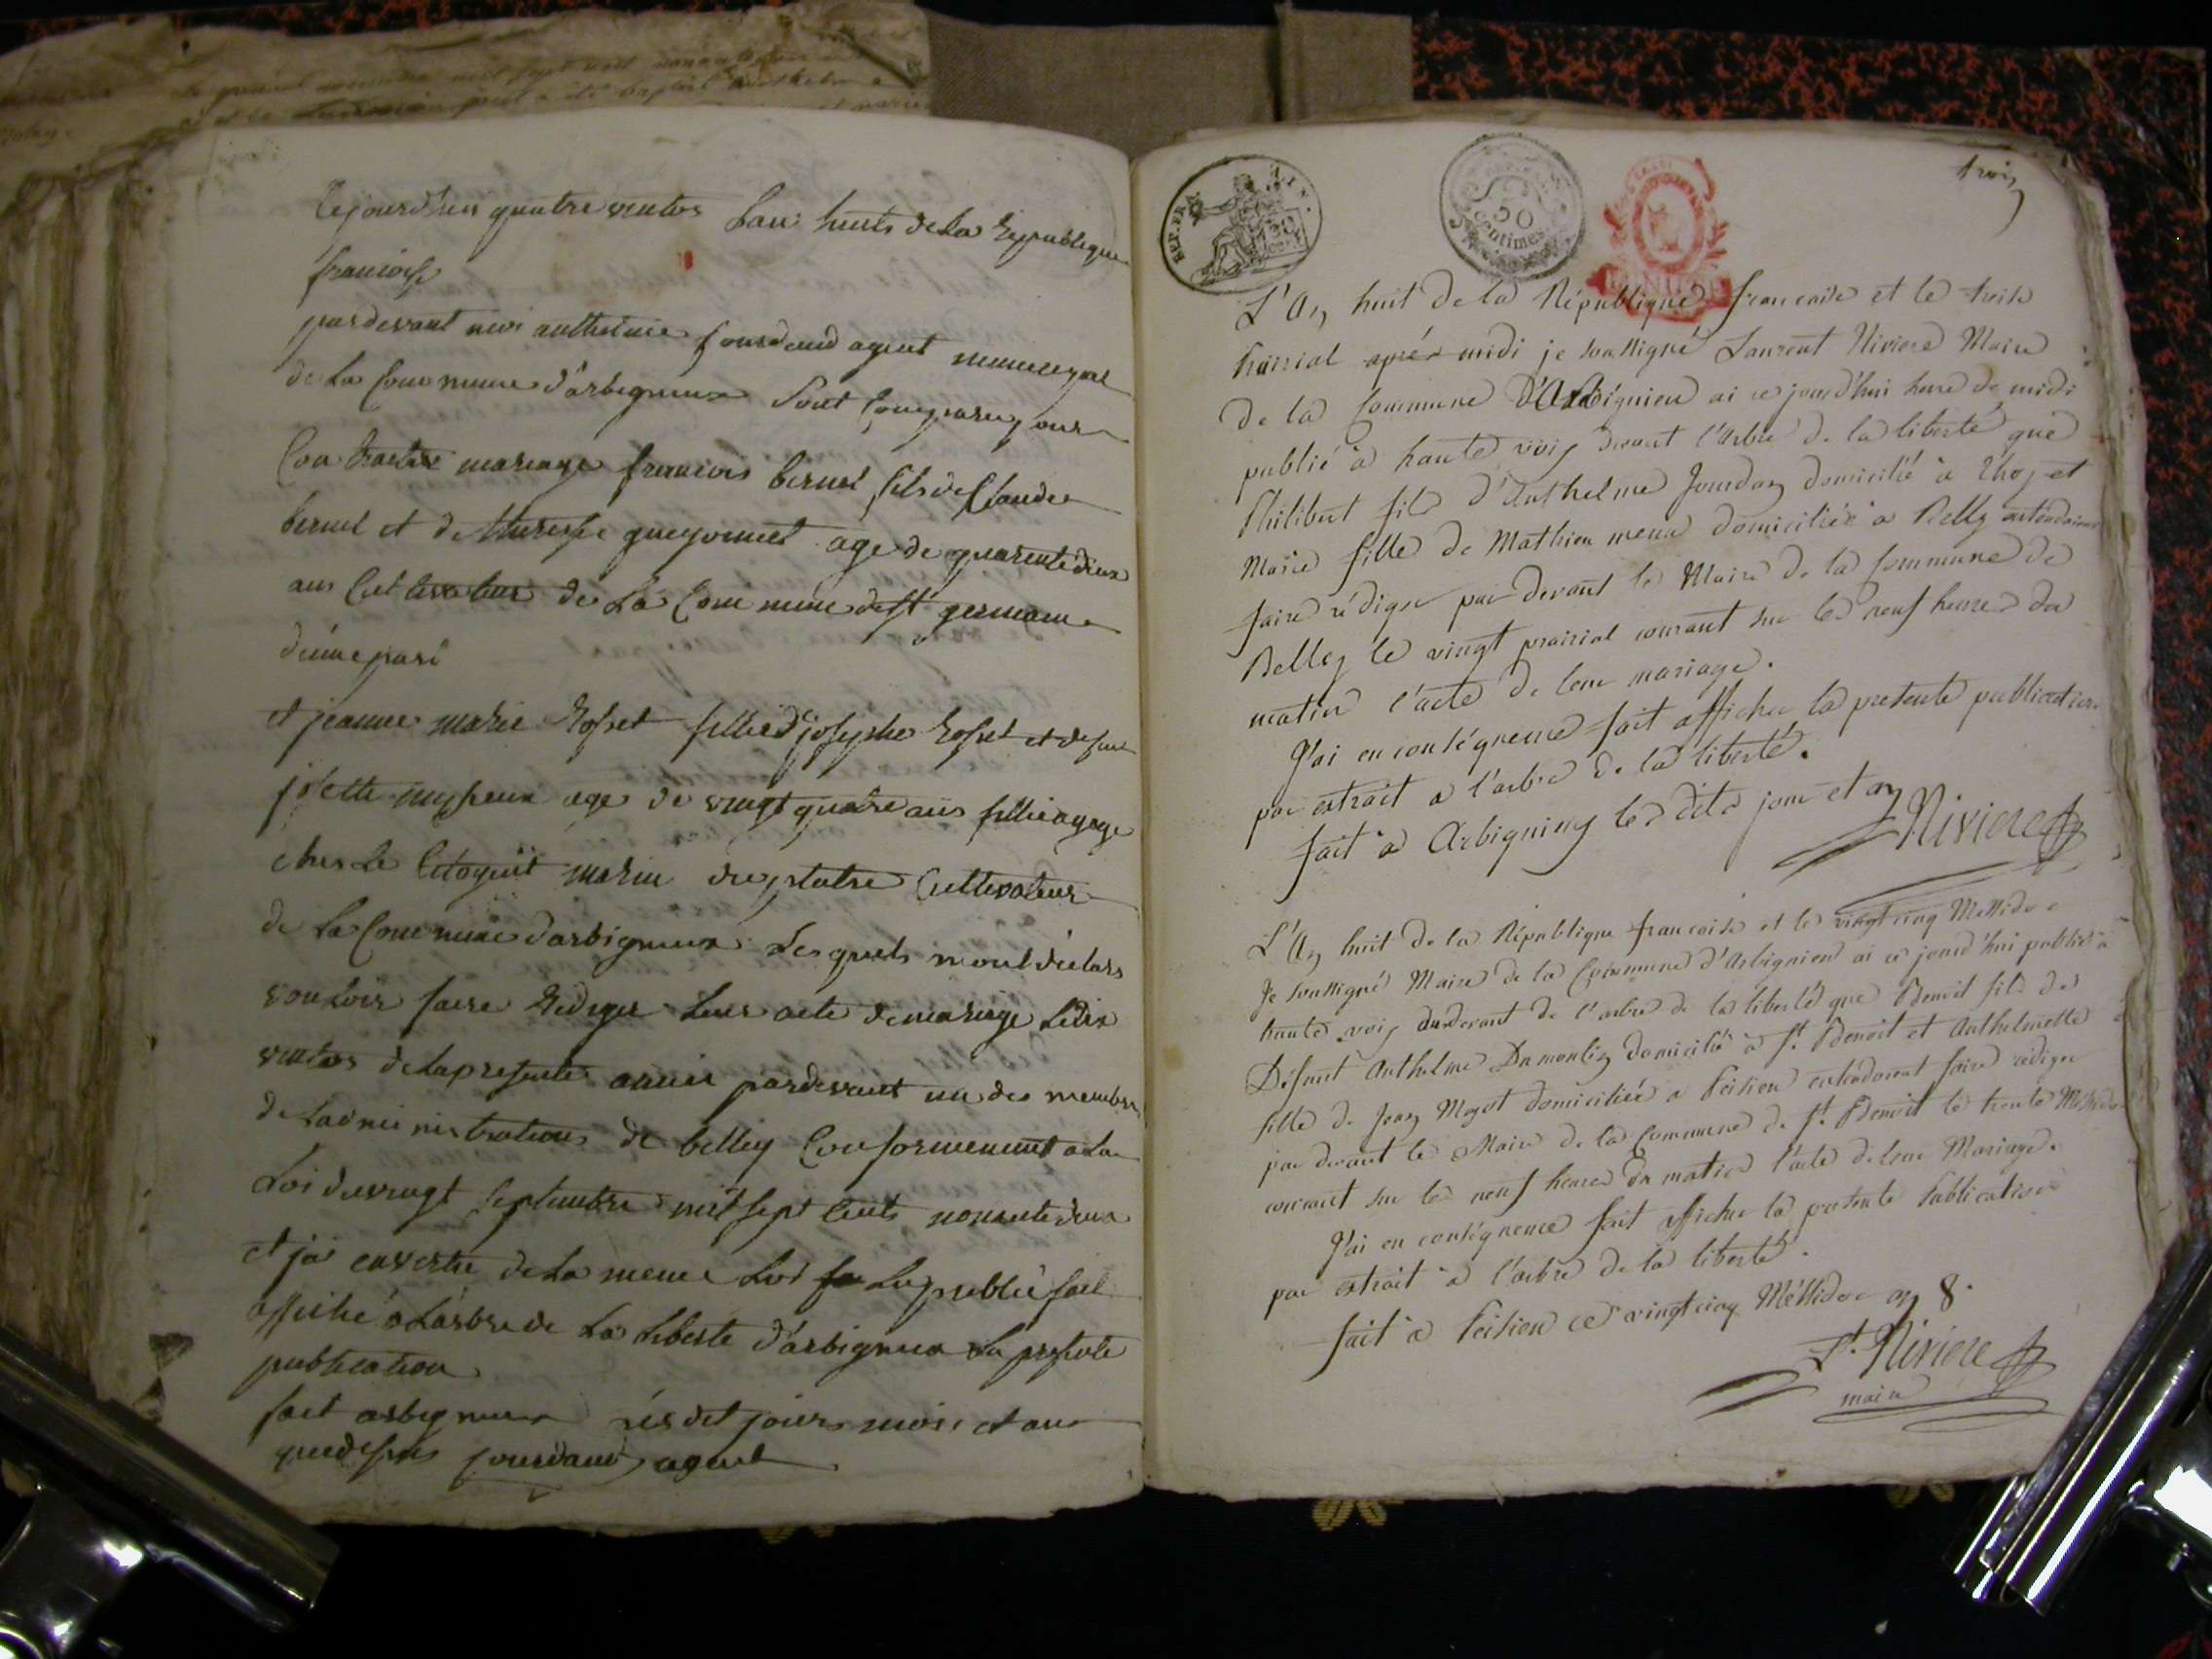 Cejourdhui quatre ventos Lan huits de La Republique
francoise
pardevant moi anthelme jourdand agent municipal
de La Commune d'arbignieux Sont Comparus pour
Contracter mariage francois bernel fils de Claude
bernel et de age de quarente deux
ans Cultivateur de La Commune de st germain
d'une part
et jeanne marie Rosset fillie d josephe Rosset et de
age de vingt quatre ans fillie
ches Le Citoyent marin cultivateur
de La Commune d'arbignieux Lesquels m'ont déclars
vouloir faire Rediger Leur acte de mariage Ledix
ventos de Lapresente annee pardevant un des membre
de Ladministration de belley Conformement a La
Loi du vingt Septembre mil sept Cents nonante deux
et jai envertu de La meme Loi Lu publié fait
affiché a Larbre de La Liberte d'arbignieux La presente
publication
fait arbignieux Lesdit jours mois et an
quedessus jourdand agent
trois
REP. FRA. AIN.
50
Centimes
L'An huit de la République francaise et le treise
Prairial après midi je soussigné Laurent Riviere Maire
de la Commune d'Arbignieu ai ce jourd'hui heure de midi
publié à haute voix devant l'Arbre de la liberté que
Philibert fils d'Anthelme Jourdan domicilié à Thoy et
Marie fille de Mathieu domiciliée à Belley entendoient
faire rédiger par devant le Maire de la Commune de
Belley le vingt prairial courant sur les neuf heures du
matin l'acte de leur mariage.
J'ai en conséquence fait afficher la presente publication
par extrait a l'arbre de la liberté.
fait à Arbignieu les dits jour et an
Riviere
L'An huit de la République francaise et le vingt cinq Messidor
Je soussigné Maire de la Commune d'Arbignieu ai ce jourd'hui publié à
haute voix de l'arbre de la liberté que Benoit fils de
Défunt Anthelme Dumoulin domicilié à St. Benoit et Anthelmette
fille de Jean Moyet domiciliée a Peisieu entendoient faire rédiger
par devant le Maire de la Commune de St. Benoit le trente Messidor
courant sur les neuf heures du matin l'acte de leur Mariage.
J'ai en conséquence fait afficher la presente Publication
par extrait à l'arbre de la liberté.
fait à Peisieu ce vingt cinq Messidor an 8.
Lt. Riviere
maire